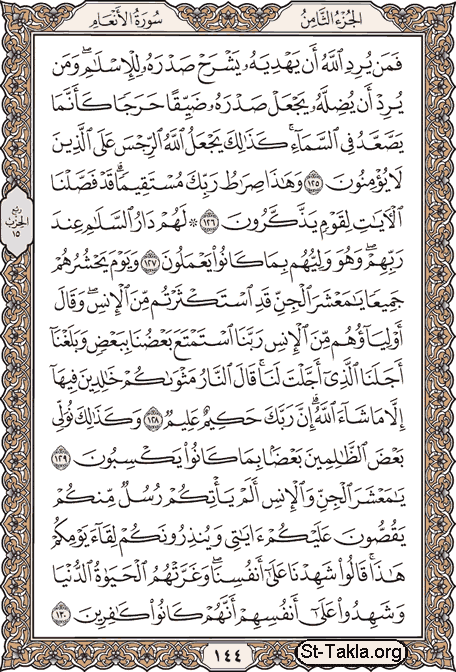 سُورَةُ الأَنْعَامِ
الجُزْءُ الثَّامِنُ
فَمَن يُرِدِ ٱللَّهُ أَن يَهْدِيَهُۥ يَشْرَحْ صَدْرَهُۥ لِلْإِسْلَٰمِ ۖ وَمَن
يُرِدْ أَن يُضِلَّهُۥ يَجْعَلْ صَدْرَهُۥ ضَيِّقًا حَرَجًا كَأَنَّمَا
يَصَّعَّدُ فِى ٱلسَّمَآءِ ۚ كَذَٰلِكَ يَجْعَلُ ٱللَّهُ ٱلرِّجْسَ عَلَى ٱلَّذِينَ
لَا يُؤْمِنُونَ ١٢٥ وَهَٰذَا صِرَٰطُ رَبِّكَ مُسْتَقِيمًا ۗ قَدْ فَصَّلْنَا
ٱلْءَايَٰتِ لِقَوْمٍ يَذَّكَّرُونَ ١٢٦ ۞ لَهُمْ دَارُ ٱلسَّلَٰمِ عِندَ
رَبِّهِمْ ۖ وَهُوَ وَلِيُّهُم بِمَا كَانُوا۟ يَعْمَلُونَ ١٢٧ وَيَوْمَ يَحْشُرُهُمْ
جَمِيعًا يَٰمَعْشَرَ ٱلْجِنِّ قَدِ ٱسْتَكْثَرْتُم مِّنَ ٱلْإِنسِ ۖ وَقَالَ
أَوْلِيَآؤُهُم مِّنَ ٱلْإِنسِ رَبَّنَا ٱسْتَمْتَعَ بَعْضُنَا بِبَعْضٍ وَبَلَغْنَآ
أَجَلَنَا ٱلَّذِىٓ أَجَّلْتَ لَنَا ۚ قَالَ ٱلنَّارُ مَثْوَىٰكُمْ خَٰلِدِينَ فِيهَآ
إِلَّا مَا شَآءَ ٱللَّهُ ۗ إِنَّ رَبَّكَ حَكِيمٌ عَلِيمٌ ١٢٨ وَكَذَٰلِكَ نُوَلِّى
بَعْضَ ٱلظَّٰلِمِينَ بَعْضًۢا بِمَا كَانُوا۟ يَكْسِبُونَ ١٢٩
يَٰمَعْشَرَ ٱلْجِنِّ وَٱلْإِنسِ أَلَمْ يَأْتِكُمْ رُسُلٌ مِّنكُمْ
يَقُصُّونَ عَلَيْكُمْ ءَايَٰتِى وَيُنذِرُونَكُمْ لِقَآءَ يَوْمِكُمْ
هَٰذَا ۚ قَالُوا۟ شَهِدْنَا عَلَىٰٓ أَنفُسِنَا ۖ وَغَرَّتْهُمُ ٱلْحَيَوٰةُ ٱلدُّنْيَا
وَشَهِدُوا۟ عَلَىٰٓ أَنفُسِهِمْ أَنَّهُمْ كَانُوا۟ كَٰفِرِينَ ١٣٠
ربع
الحزب
١٥
١٤٤
St-Takla.org